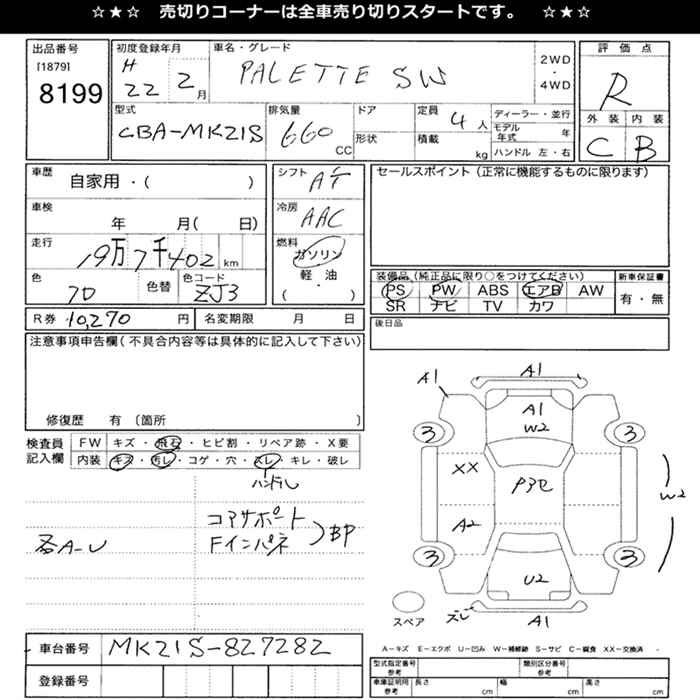 ☆★☆ 売切りコーナーは全車売り切りスタートです。 ☆★☆
出品番号 初度登録年月 車名・グレード 評価点
[1879] H 22 2月 PALETTE SW 2WD・4WD R
8199
型式 排気量 ドア 定員 4人 ディーラー・並行 外装 内装
CBA-MK21S 660CC 形状 積載 kg モデル年式 年 C B
ハンドル 左・右
車歴 シフト AT セールスポイント(正常に機能するものに限ります)
自家用・( )
車検 冷房 AAC
年 月( 日)
走行 燃料
19万7千402km ガソリン
軽・油
色 色替 色コード ・ 装備品(純正品に限り○をつけてください) 新車保証書
ZJ3 ( ) PS PW ABS エアB AW 有・無
SR ナビ TV カワ
R券 10,270円 名変期限 月 日 後日品
注意事項申告欄(不具合内容等は具体的に記入して下さい)
修復歴 有〔箇所 〕
検査員 FW キズ・飛石・ヒビ割・リペア跡・X要
記入欄 内装 キズ・汚レ・コゲ・穴・スレ・キレ・破レ
ハンドル
コアサポート
各A-U Fインパネ )BP
A1 A1
A1
W2
3 3
XX Pアセ W2
A2
3 3
U2
スペア スレ A1
A-キズ E-エクボ U-凹み W-補修跡 S-サビ C-腐食 XX-交換済 -
車台番号 MK21S-827282
登録番号
型式指定番号 参考 類別区分番号 参考
車庫証明用 参考 長さ cm 幅 cm 高さ cm